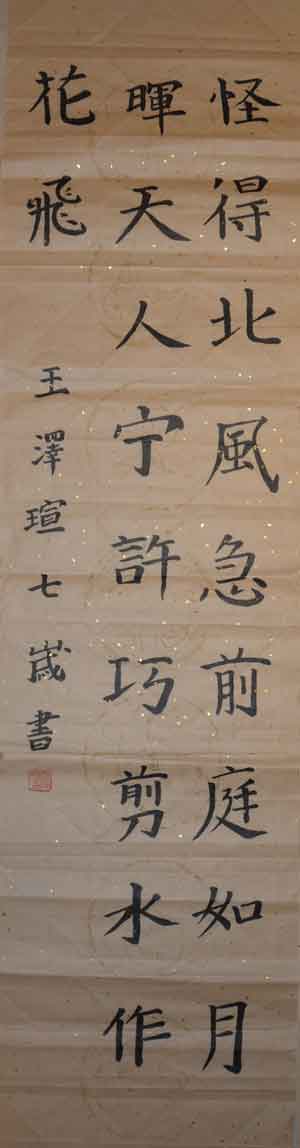 怪得北風急前庭如月
暉天人宁許巧剪水作
花飛
王澤瑄七歲書